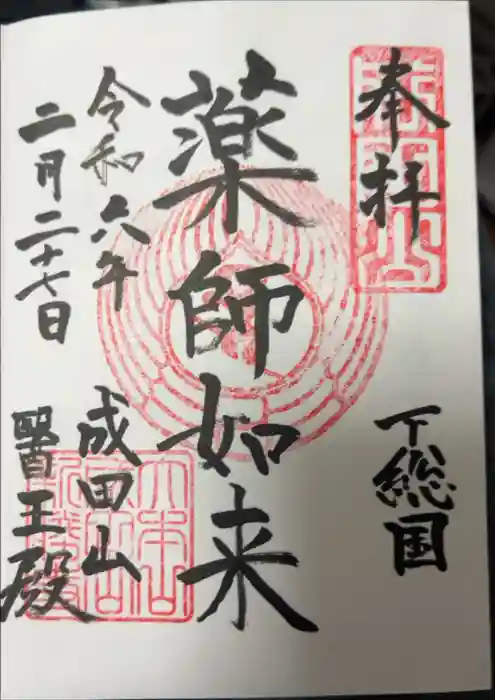 奉拝
下総国
薬師如来
令和六年
二月二十七日
成田山
醫王殿